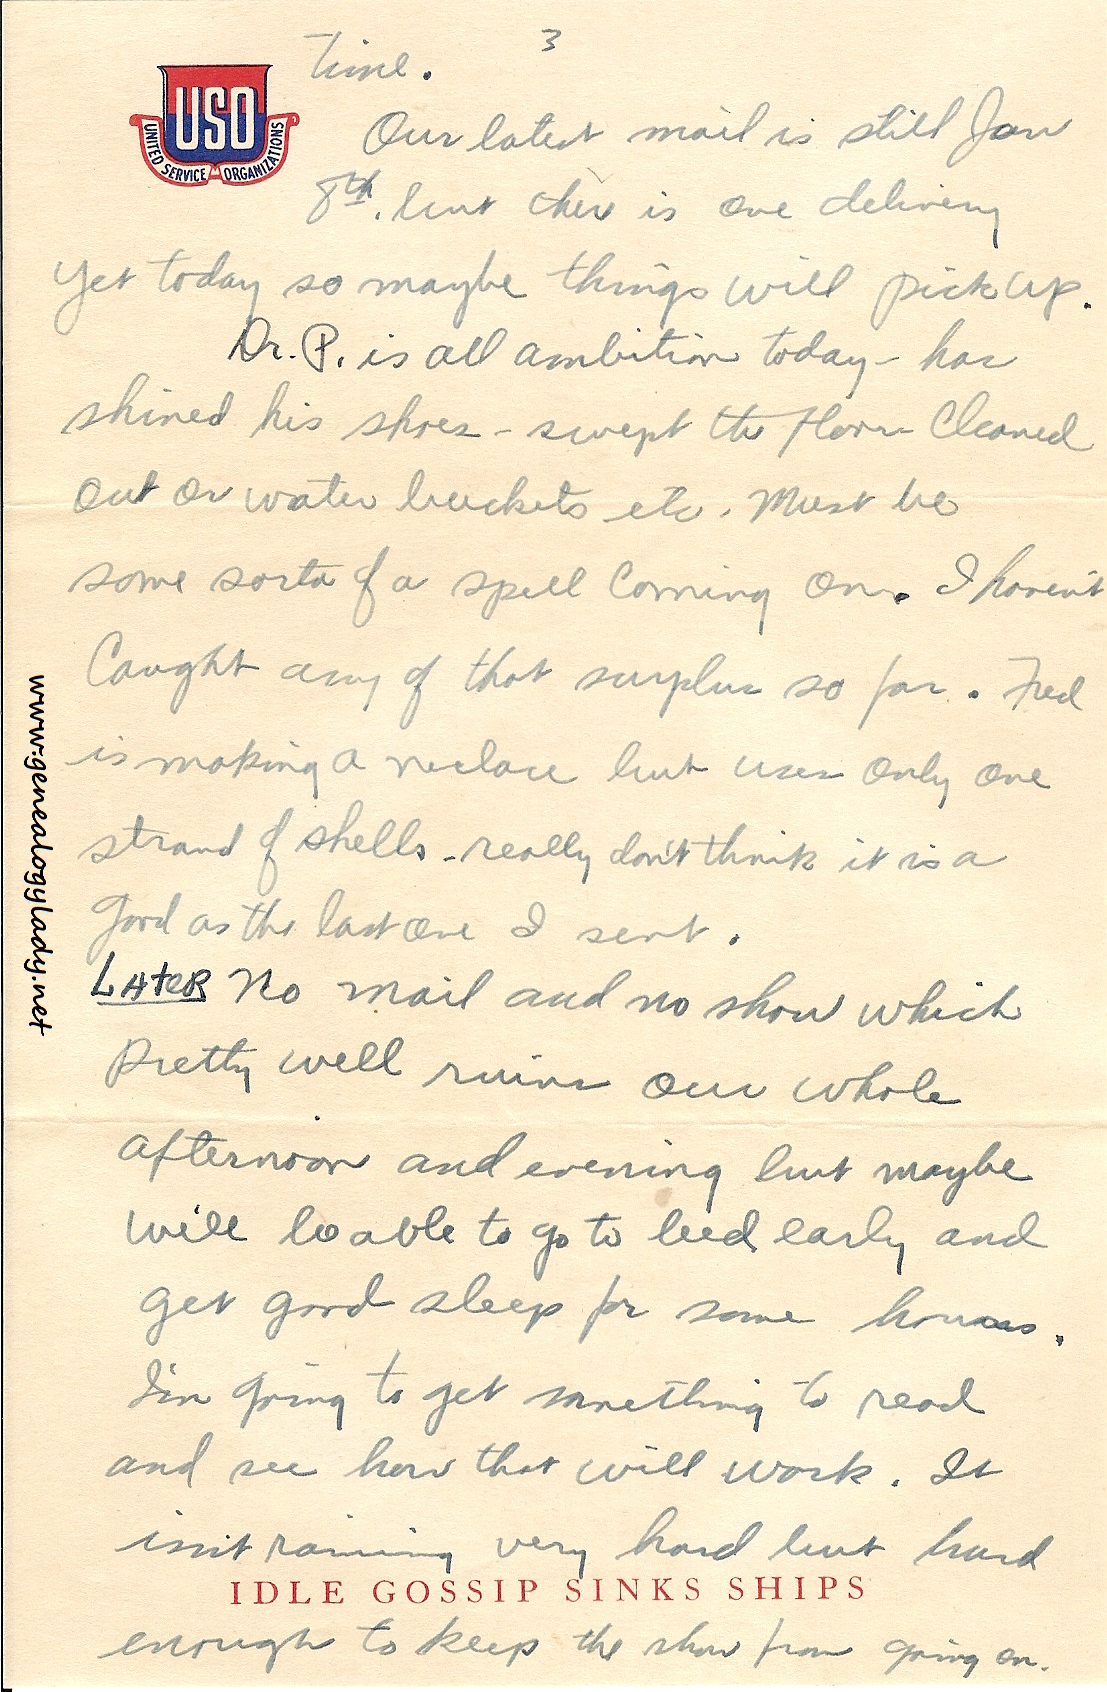 3
time.
USO
UNITED SERVICE ORGANIZATIONS
Our latest mail is still Jan
8th. but there is one delivery
yet today so maybe things will pick up.
Dr. P. is all ambition today - has
shined his shoes - swept the floor - cleaned
out our water buckets etc. Must be
some sorta of a spell coming on. I haven't
caught any of that surplus so far. Fred
is making a neclace but uses only one
strand of shells - really don't think it is a
good as the last one I sent.
LAteR No mail and no show which
pretty well ruins our whole
afternoon and evening but maybe
will be able to go to bed early and
get good sleep for some hours.
I'm going to get something to read
and see how that will work. It
isn't raining very hard but hard
IDLE GOSSIP SINKS SHIPS
enough to keep the show from going on.
www.genealogylady.net